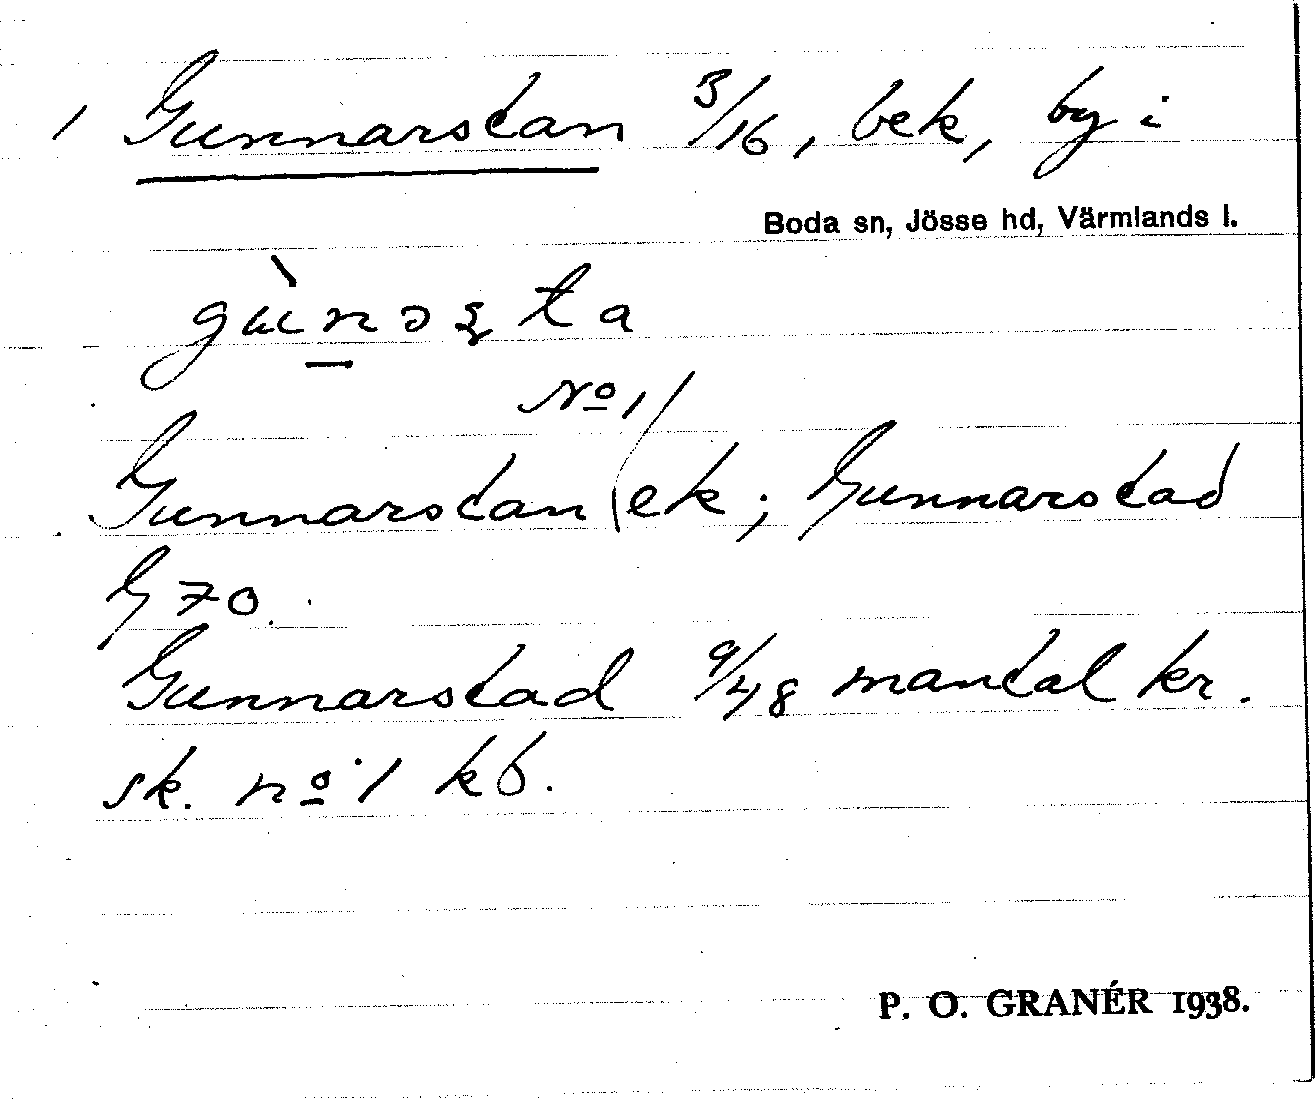 1 Gunnarstan 3/16, bek, by i
Boda sn, Jösse hd, Värmlands l.
gùnəʂta
No 1
Gunnarstan ek; Gunnarstad
G 70.
Gunnarstad 9/48 mantal kr.
sk. no 1 kb.
P. O. GRANÉR 1938.